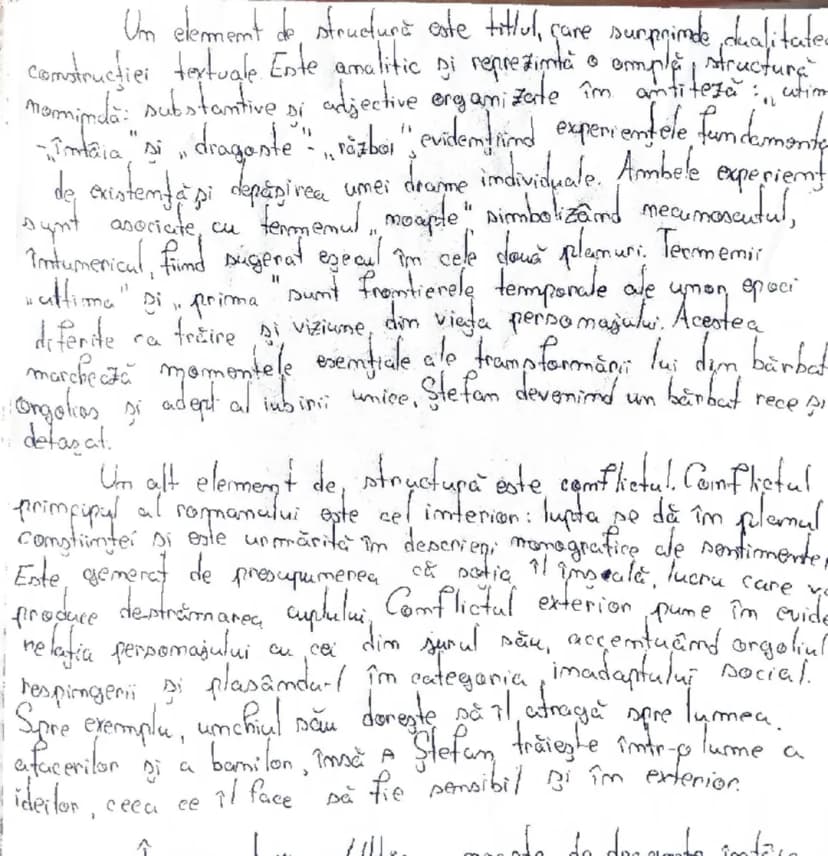 Un element de structură este titlul, care surprinde dualitatea
construcției textuale. Este analitic și reprezintă o amplă structură
nominală: substantive și adjective organizate în antiteză: „ultim
-„întâia" și „dragoste"-„război", evidențiind experiențele fundamente
de existență și depășirea unei drame individuale. Ambele experienț
sunt asociate cu termenul „noapte", simbolizând necunoscutul,
întunericul, fiind sugerat eșecul în cele două planuri. Termenii
„ultima" și „prima" sunt frontierele temporale ale unor epoci
diferite ca trăire și viziune, din viața personajului. Acestea
marchează momentele esențiale ale transformării lui din bărbat
orgolios și adept al iubirii unice, Ștefan devenind un bărbat rece și
detașat.
Un alt element de structură este conflictul. Conflictul
principal al romanului este cel interior: lupta se dă în planul
conștiinței și este urmărită în descrieri monografice ale sentimente
Este generat de presupunerea că soția îl înșeală, lucru care va
produce destrămarea cuplului. Conflictul exterior pune în evide
relația personajului cu cei din jurul său, accentuând orgoliul
respingerii și plasându-l în categoria inadaptului social.
Spre exemplu, unchiul său dorește să îl atragă spre lumea
afacerilor și a banilor, însă Ștefan trăiește într-o lume a
ideilor, ceea ce îl face să fie sensibil și în exterior.